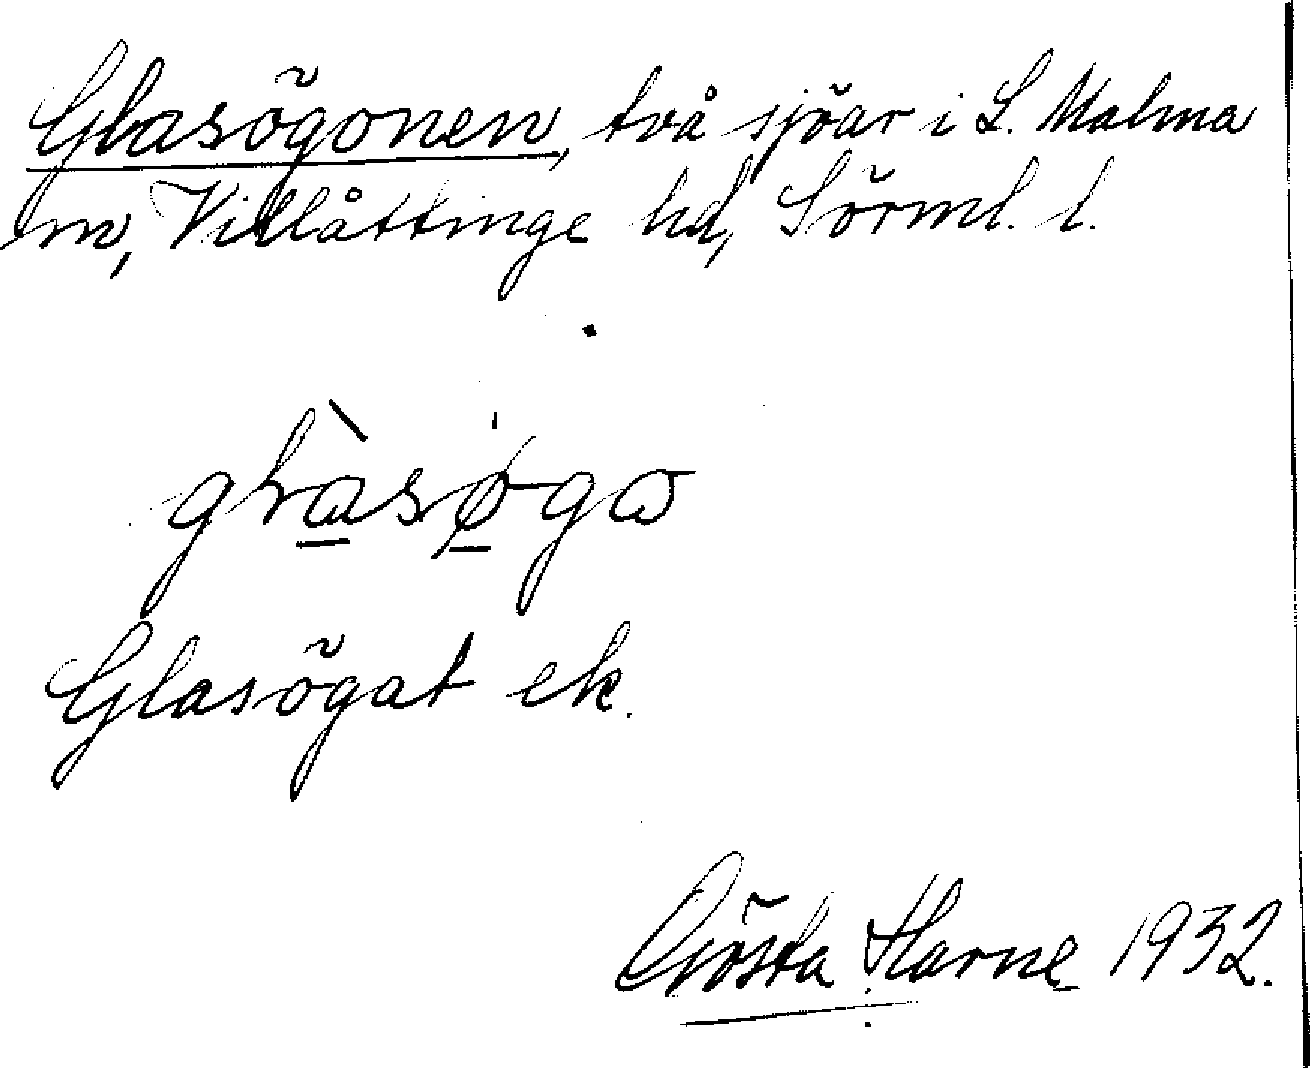 Glasögonen, två sjöar i L. Malma
sn, Villåttinge hd, Sörml. l.
glàsøgω
Glasögat ek.
Gösta Harne 1932.